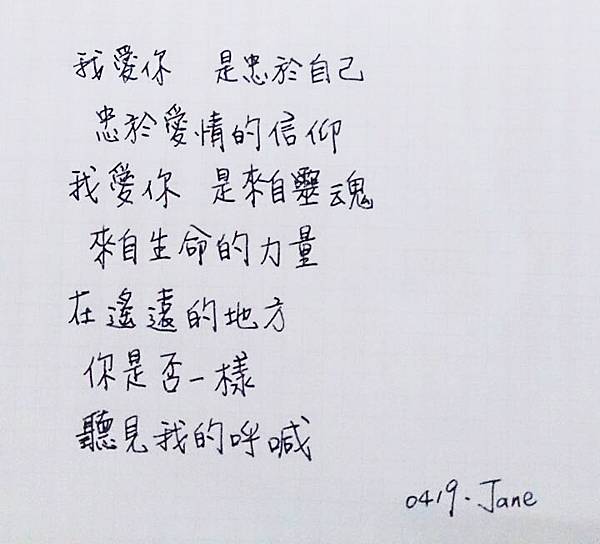 我愛你 是忠於自己
忠於愛情的信仰
我愛你 是來自靈魂
來自生命的力量
在遙遠的地方
你是否一樣
聽見我的呼喊
0419. Jane